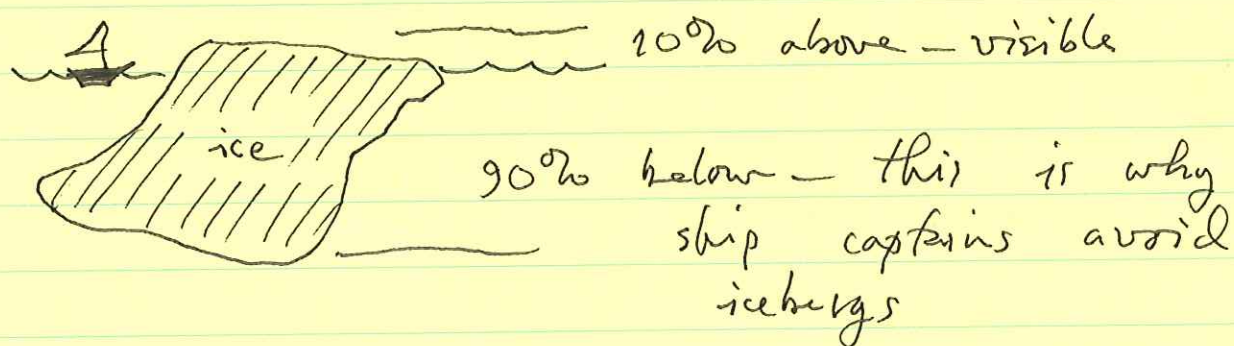 10% above - visible
ice
90% below - this is why
ship captains avoid
icebergs